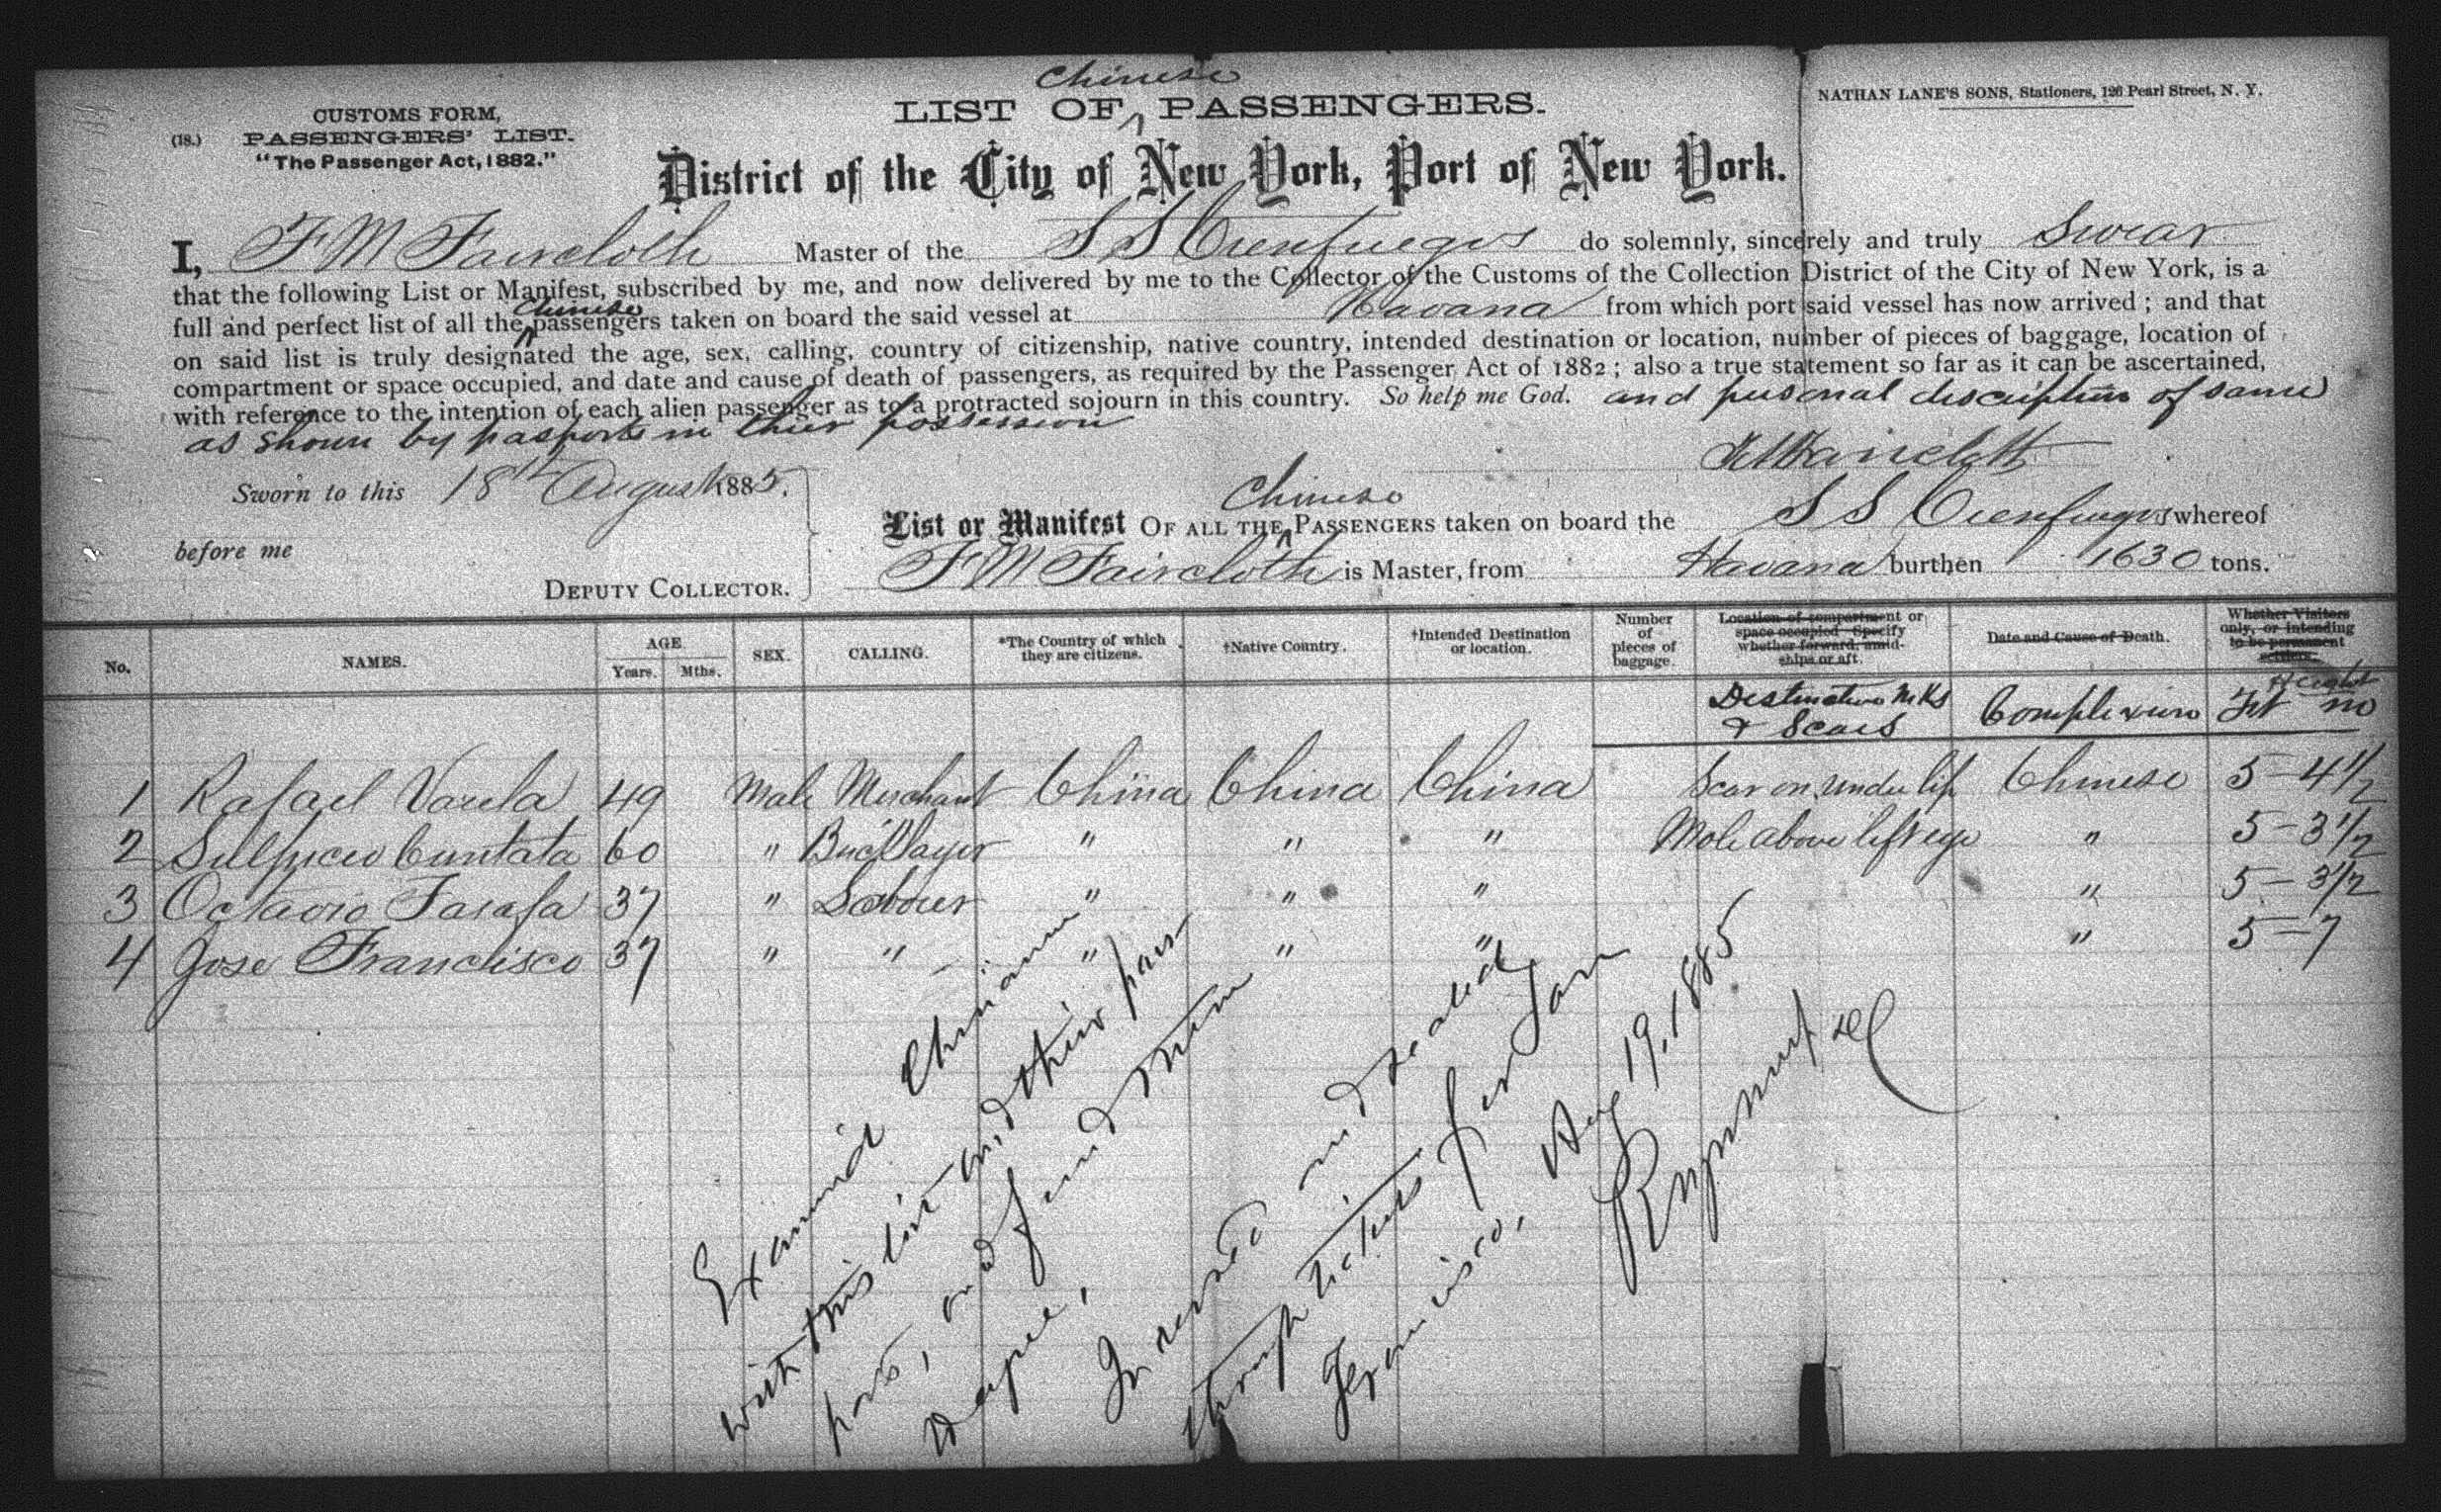 Chinese
CUSTOMS FORM,
(18.) PASSENGERS' LIST.
"The Passenger Act, 1882."
LIST OF ^ PASSENGERS.
NATHAN LANE'S SONS, Stationers, 126 Pearl Street, N. Y.
District of the City of New York, Port of New York.
I, F M Faircloth Master of the S S Cienfuegos do solemnly, sincerely and truly Swear
that the following List or Manifest, subscribed by me, and now delivered by me to the Collector of the Customs of the Collection District of the City of New York, is a
full and perfect list of all the ^ Chinese passengers taken on board the said vessel at Havana from which port said vessel has now arrived; and that
on said list is truly designated the age, sex, calling, country of citizenship, native country, intended destination or location, number of pieces of baggage, location of
compartment or space occupied, and date and cause of death of passengers, as required by the Passenger Act of 1882; also a true statement so far as it can be ascertained,
with reference to the intention of each alien passenger as to a protracted sojourn in this country. So help me God. and personal description of same
as shown by pasports in thier possession
F M Faircloth
Sworn to this 18th August 1885.
before me
DEPUTY COLLECTOR.
List or Manifest OF ALL THE ^ Chinese PASSENGERS taken on board the S S Cienfuegos whereof
F M Faircloth is Master, from Havana burthen 1630 tons.
No. NAMES. AGE Years. Mths. SEX. CALLING. *The Country of which they are citizens. †Native Country. †Intended Destination or location. Number of pieces of baggage. Location of compartment or space occupied Specify whether forward, amid-ships or aft. Date and Cause of Death. Whether Visitors only, or intending to be permanent settlers.
Height
Destinctive Mks & Scars Complexion Ft In
1 Rafael Varela 49 Male Merchant China China China Scar on under lip Chinese 5-4 1/2
2 Sulpicio Cuntata 60 " Bricklayer " " " Mole above left eye " 5-3 1/2
3 Octavio Tarafa 37 " Laborer " " " " 5-3 1/2
4 Jose Francisco 37 " " " " " " 5-7
Examined Chinamen
with this list and their pass-
ports, and found them
to agree.
In possession
through tickets for San
Francisco, Aug 19, 1885